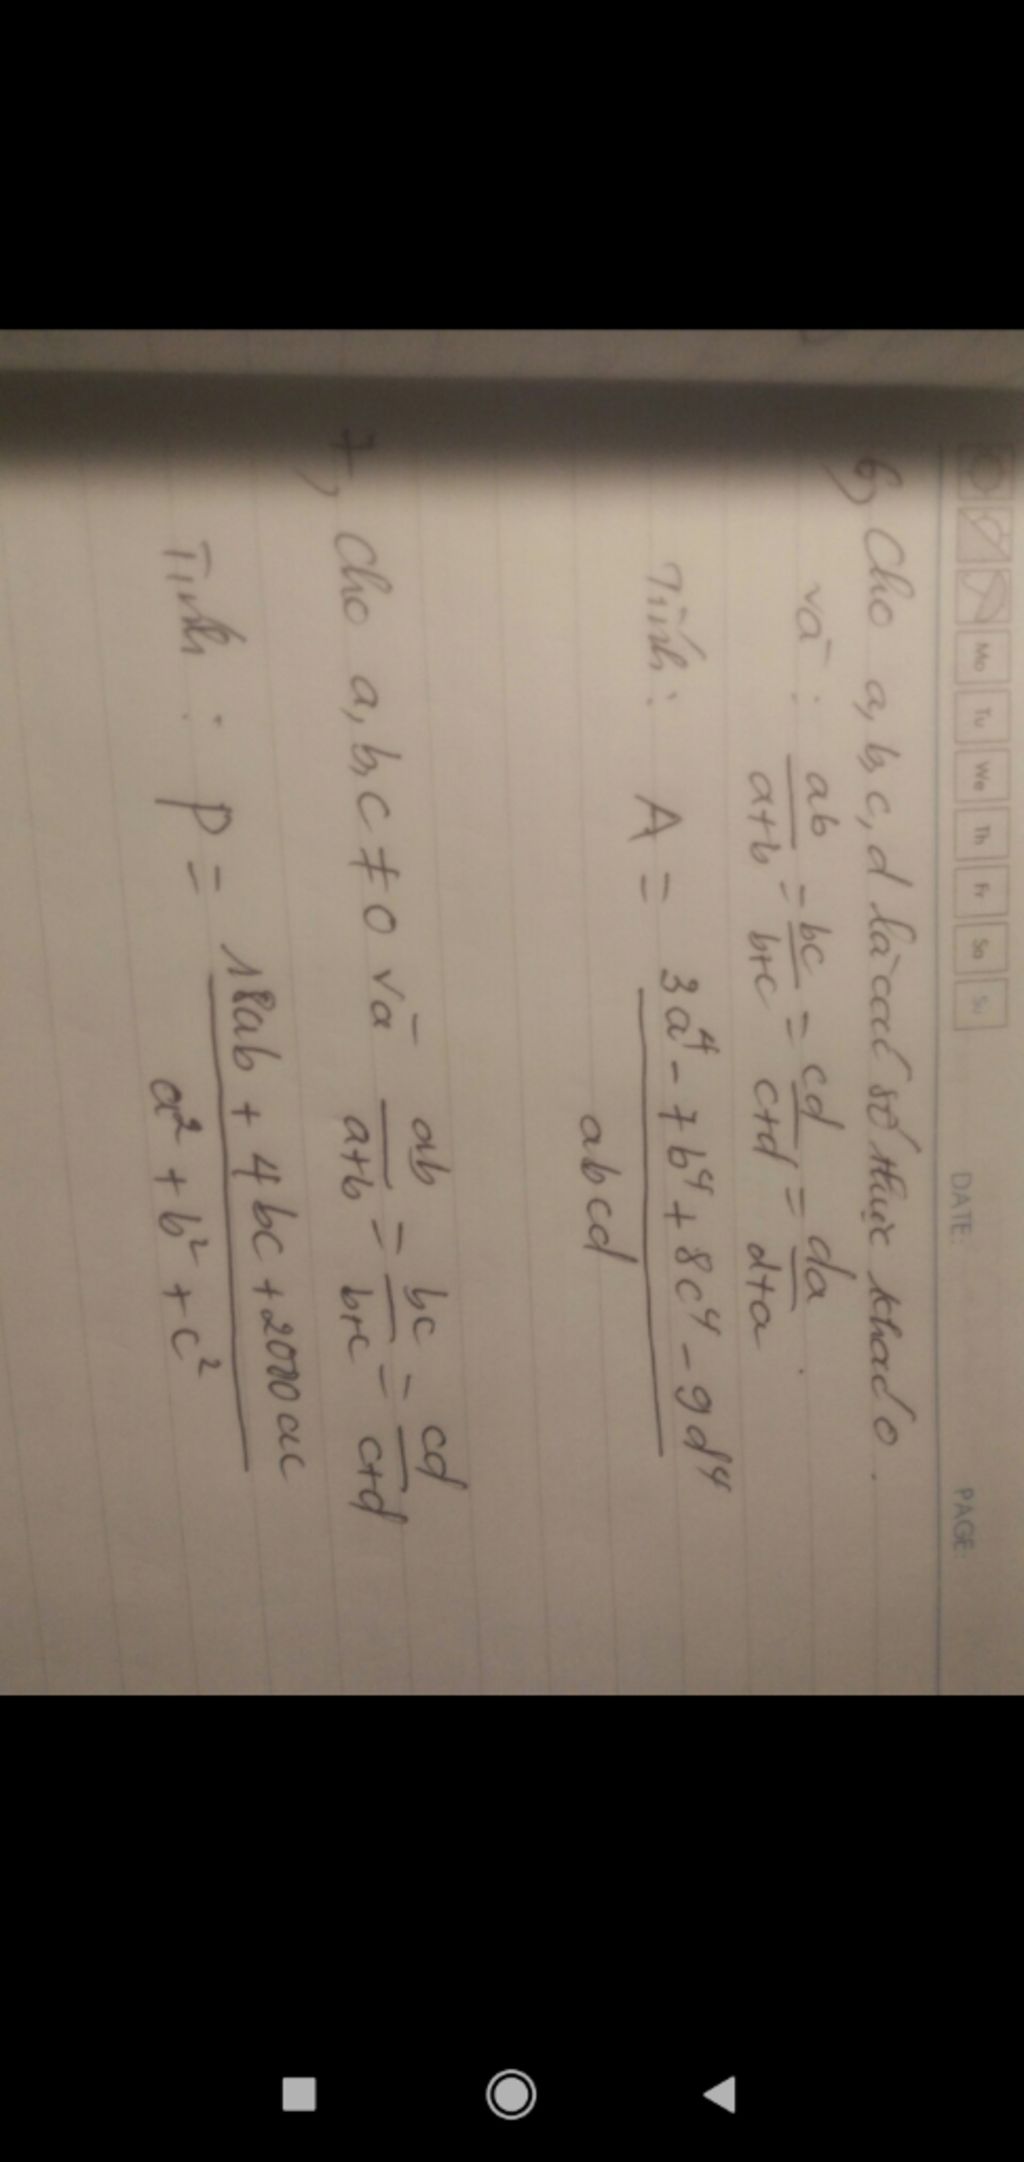 Mo Tu We Th Fr Sa Su DATE: PAGE:
6, Cho a, b, c, d là các số thực khác 0.
và : ab/a+b = bc/b+c = cd/c+d = da/d+a .
Tính : A = 3a⁴ - 7b⁴ + 8c⁴ - 9d⁴ / abcd
7, Cho a, b, c ≠ 0 và ab/a+b = bc/b+c = cd/c+d
Tính : P = 18ab + 4bc + 2000ac / a² + b² + c²